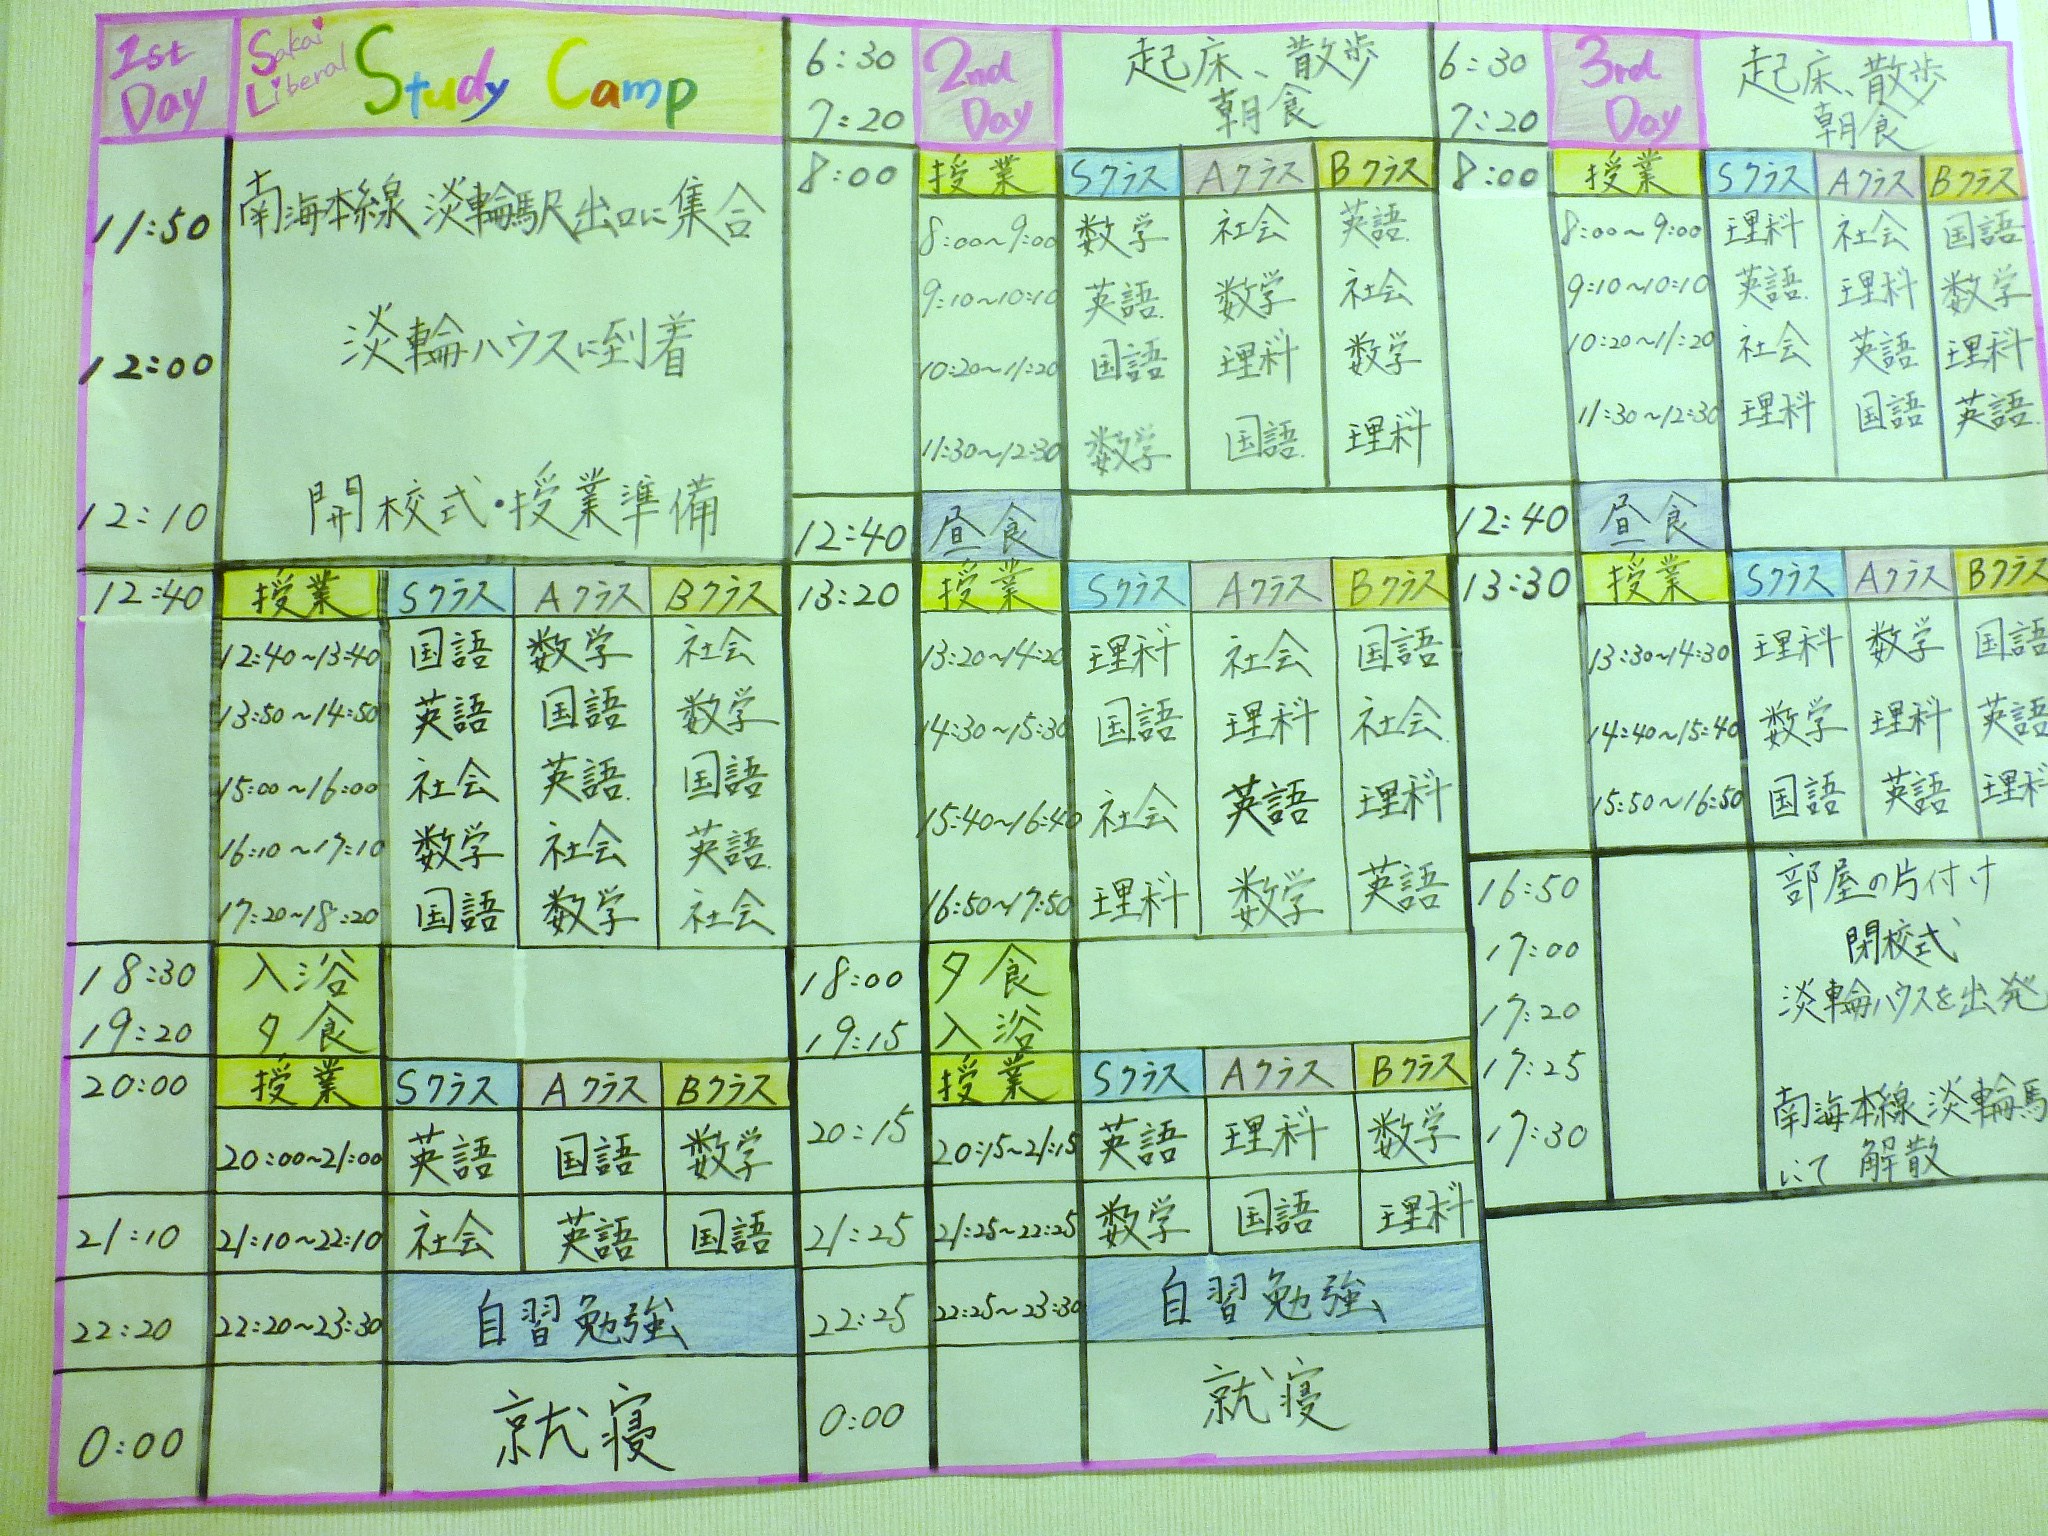 1st Day
Sakai Liberal Study Camp
11:50 南海本線 淡輪駅出口に集合
12:00 淡輪ハウスに到着
12:10 開校式・授業準備
12:40 授業 Sクラス Aクラス Bクラス
12:40~13:40 国語 数学 社会
13:50~14:50 英語 国語 数学
15:00~16:00 社会 英語 国語
16:10~17:10 数学 社会 英語
17:20~18:20 国語 数学 社会
18:30 入浴
19:20 夕食
20:00 授業 Sクラス Aクラス Bクラス
20:00~21:00 英語 国語 数学
21:10 21:10~22:10 社会 英語 国語
22:20 22:20~23:30 自習勉強
0:00 就寝
2nd Day
6:30 起床、散歩
7:20 朝食
8:00 授業 Sクラス Aクラス Bクラス
8:00~9:00 数学 社会 英語
9:10~10:10 英語 数学 社会
10:20~11:20 国語 理科 数学
11:30~12:30 数学 国語 理科
12:40 昼食
13:20 授業 Sクラス Aクラス Bクラス
13:20~14:20 理科 社会 国語
14:30~15:30 国語 理科 社会
15:40~16:40 社会 英語 理科
16:50~17:50 理科 数学 英語
18:00 夕食
19:15 入浴
授業 Sクラス Aクラス Bクラス
20:15 20:15~21:15 英語 理科 数学
21:25 21:25~22:25 数学 国語 理科
22:25 22:25~23:30 自習勉強
0:00 就寝
3rd Day
6:30 起床、散歩
7:20 朝食
8:00 授業 Sクラス Aクラス Bクラス
8:00~9:00 理科 社会 国語
9:10~10:10 英語 理科 数学
10:20~11:20 社会 英語 理科
11:30~12:30 理科 国語 英語
12:40 昼食
13:30 授業 Sクラス Aクラス Bクラス
13:30~14:30 理科 数学 国語
14:40~15:40 数学 理科 英語
15:50~16:50 国語 英語 理科
16:50 部屋の片付け
17:00 閉校式
17:20 淡輪ハウスを出発
17:25
17:30 南海本線 淡輪駅
にて 解散